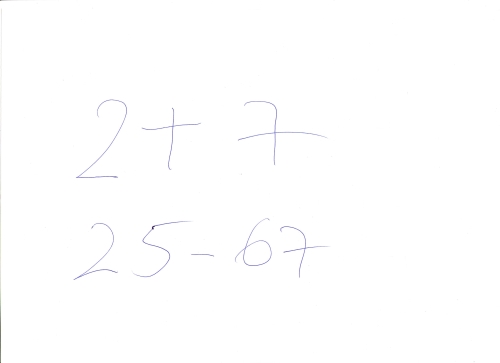 2 + 7
25 - 67